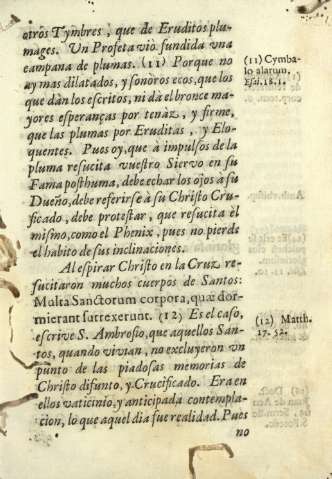 otros Tymbres, que de Eruditos plu-
mages. Un Profeta viò fundida vna
campana de plumas. (11) Porque no
ay mas dilatados, y sonoros ecos, que los
que dàn los escritos, ni dà el bronce ma-
yores esperanças por tenàz, y firme,
que las plumas por Eruditas, y Elo-
quentes. Pues oy, que à impulsos de la
pluma resucita vuestro Siervo en su
Fama posthuma, debe echar los ojos à su
Dueño, debe referirse à su Christo Cru-
cificado, debe protestar, que resucita el
mismo, como el Phenix, pues no pierde
el habito de sus inclinaciones.
Al espirar Christo en la Cruz re-
sucitaron muchos cuerpos de Santos:
Multa Sanctorum corpora, quæ dor-
mierant surrexerunt. (12) Es el caso,
escrive S. Ambrosio, que aquellos San-
tos, quando vivian, no excluyeron vn
punto de las piadosas memorias de
Christo difunto, y Crucificado. Era en
ellos vaticinio, y anticipada contempla-
cion, lo que aquel dia fue realidad. Pues
no
(11) Cymba-
lo alarum,
Esai. 18. 1.
(12) Matth.
27. 52.